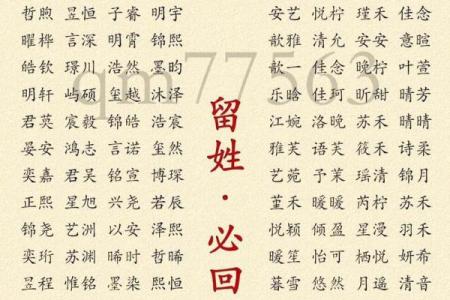 哲煦 昱恒 子睿 明宇
曜桦 言深 明霄 锦熙
皓钦 璟川 浩然 墨昀
明轩 屿硕 玺越 沐泽
君莫 宸毅 锦皓 浩宸
晏安 鸿志 言诺 玺然
奕嘉 君昊 铭宣 博琛
正熙 星旭 兴尧 若辰
锦尧 艺洲 以安 泽熙
奕珩 苏渊 晞时 皙时
昱程 惟铭 墨染 熙恒
留姓·必回
安艺 悦柠 瑾禾 佳念
歆雅 清允 安安 意暄
歆一 佳念 晚柠 叶萱
乐晗 佳珂 昕甜 晴芳
江婉 洛晚 苏禾 晴晴
雅芙 语芙 筱禾 诗柔
艺菀 予茉 瑶清 锦月
堇禾 暖暖 芮柠 苏禾
悦颖 倾盈 星漫 羽禾
暖笙 怡可 栖悦 妍希
暮雪 悠然 月遥 清音
qm77563